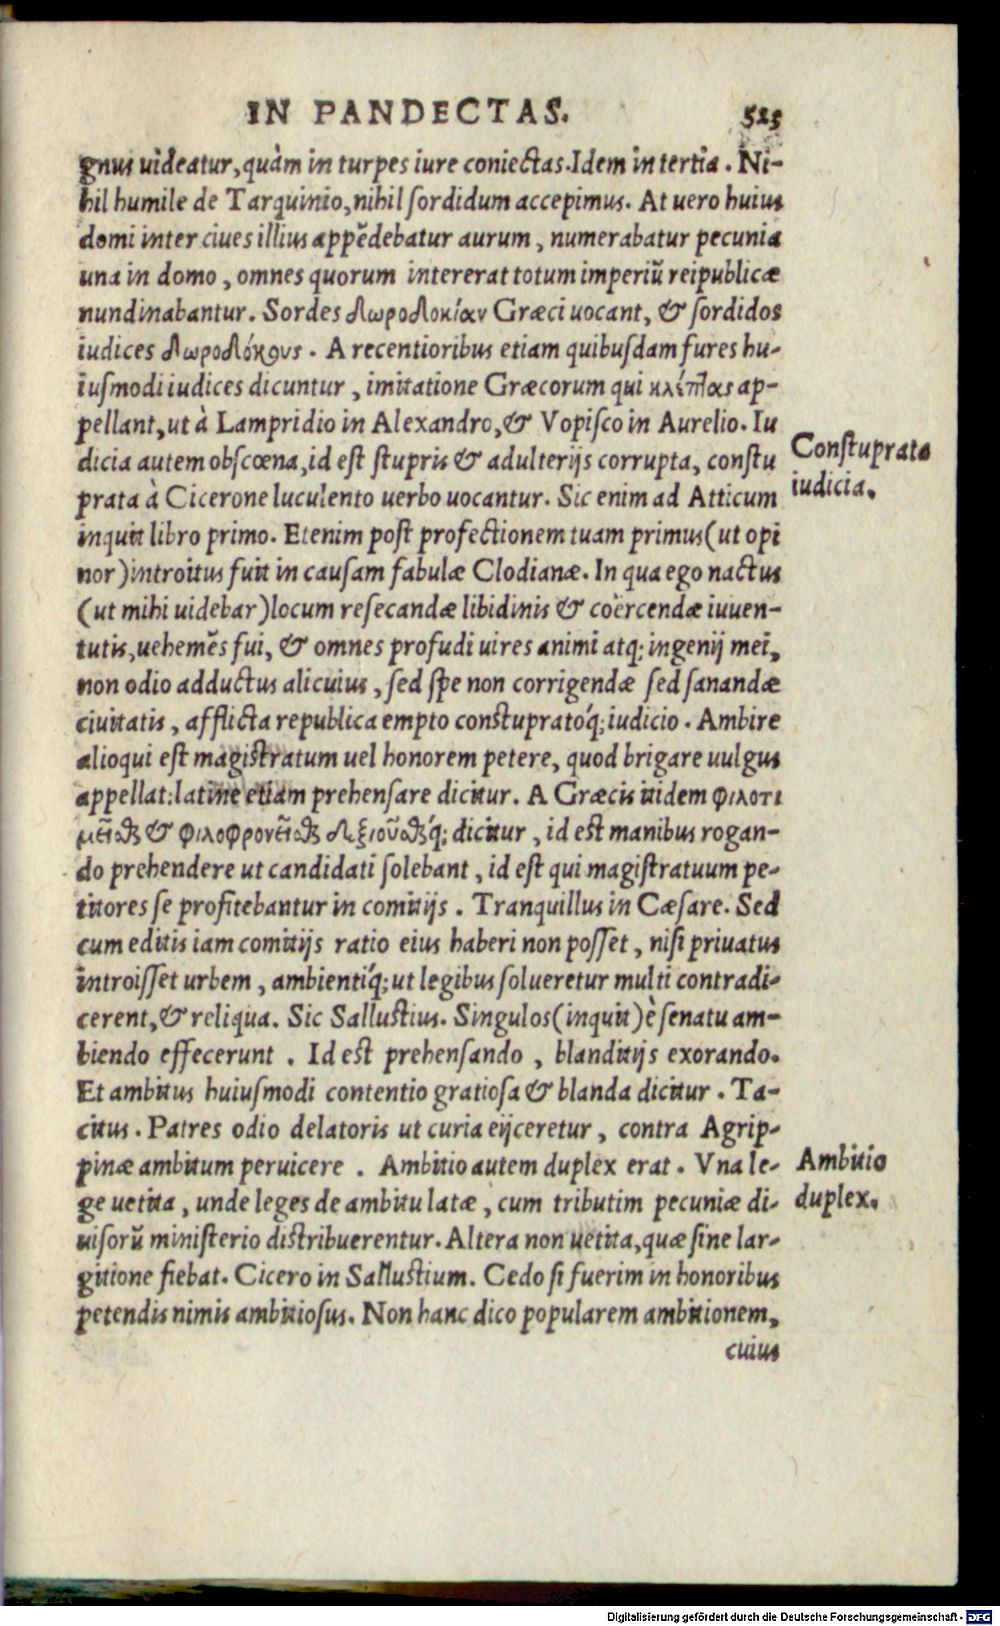 IN PANDECTAS. 525
gnus uideatur, quàm in turpes iure coniectas. Idem in tertia. Ni-
hil humile de Tarquinio, nihil sordidum accepimus. At uero huius
domi inter ciues illius appēdebatur aurum, numerabatur pecunia
una in domo, omnes quorum intererat totum imperiū reipublicæ
nundinabantur. Sordes δωροδοκίαν Græci uocant, & sordidos
iudices δωροδόκους. A recentioribus etiam quibusdam fures hu-
iusmodi iudices dicuntur, imitatione Græcorum qui κλέπτας ap-
pellant, ut à Lampridio in Alexandro, & Vopisco in Aurelio. Iu
dicia autem obscœna, id est stupris & adulterijs corrupta, constu
prata à Cicerone luculento uerbo uocantur. Sic enim ad Atticum
inquit libro primo. Etenim post profectionem tuam primus (ut opi
nor) introitus fuit in causam fabulæ Clodianæ. In qua ego nactus
(ut mihi uidebar) locum resecandæ libidinis & coërcendæ iuuen-
tutis, uehemēs fui, & omnes profudi uires animi atq; ingenij mei,
non odio adductus alicuius, sed spe non corrigendæ sed sanandæ
ciuitatis, afflicta republica empto constuprató́q; iudicio. Ambire
alioqui est magistratum uel honorem petere, quod brigare uulgus
appellat: latine etiam prehensare dicitur. A Græcis itidem φιλοτι
μεῖσθαι & φιλοφρονεῖσθαι δεξιοῦσθαíq; dicitur, id est manibus rogan-
do prehendere ut candidati solebant, id est qui magistratuum pe-
titores se profitebantur in comitijs. Tranquillus in Cæsare. Sed
cum editis iam comitijs ratio eius haberi non posset, nisi priuatus
introisset urbem, ambientíq; ut legibus solueretur multi contradi-
cerent, & reliqua. Sic Sallustius. Singulos (inquit) è senatu am-
biendo effecerunt. Id est prehensando, blanditijs exorando.
Et ambitus huiusmodi contentio gratiosa & blanda dicitur. Ta-
citus. Patres odio delatoris ut curia eijceretur, contra Agrip-
pinæ ambitum peruicere. Ambitio autem duplex erat. Vna le-
ge uetita, unde leges de ambitu latæ, cum tributim pecuniæ di-
uisorū ministerio distribuerentur. Altera non uetita, quæ sine lar-
gitione fiebat. Cicero in Sallustium. Cedo si fuerim in honoribus
petendis nimis ambitiosus. Non hanc dico popularem ambitionem,
cuius
Constuprata
iudicia.
Ambitio
duplex.
Digitalisierung gefördert durch die Deutsche Forschungsgemeinschaft - DFG